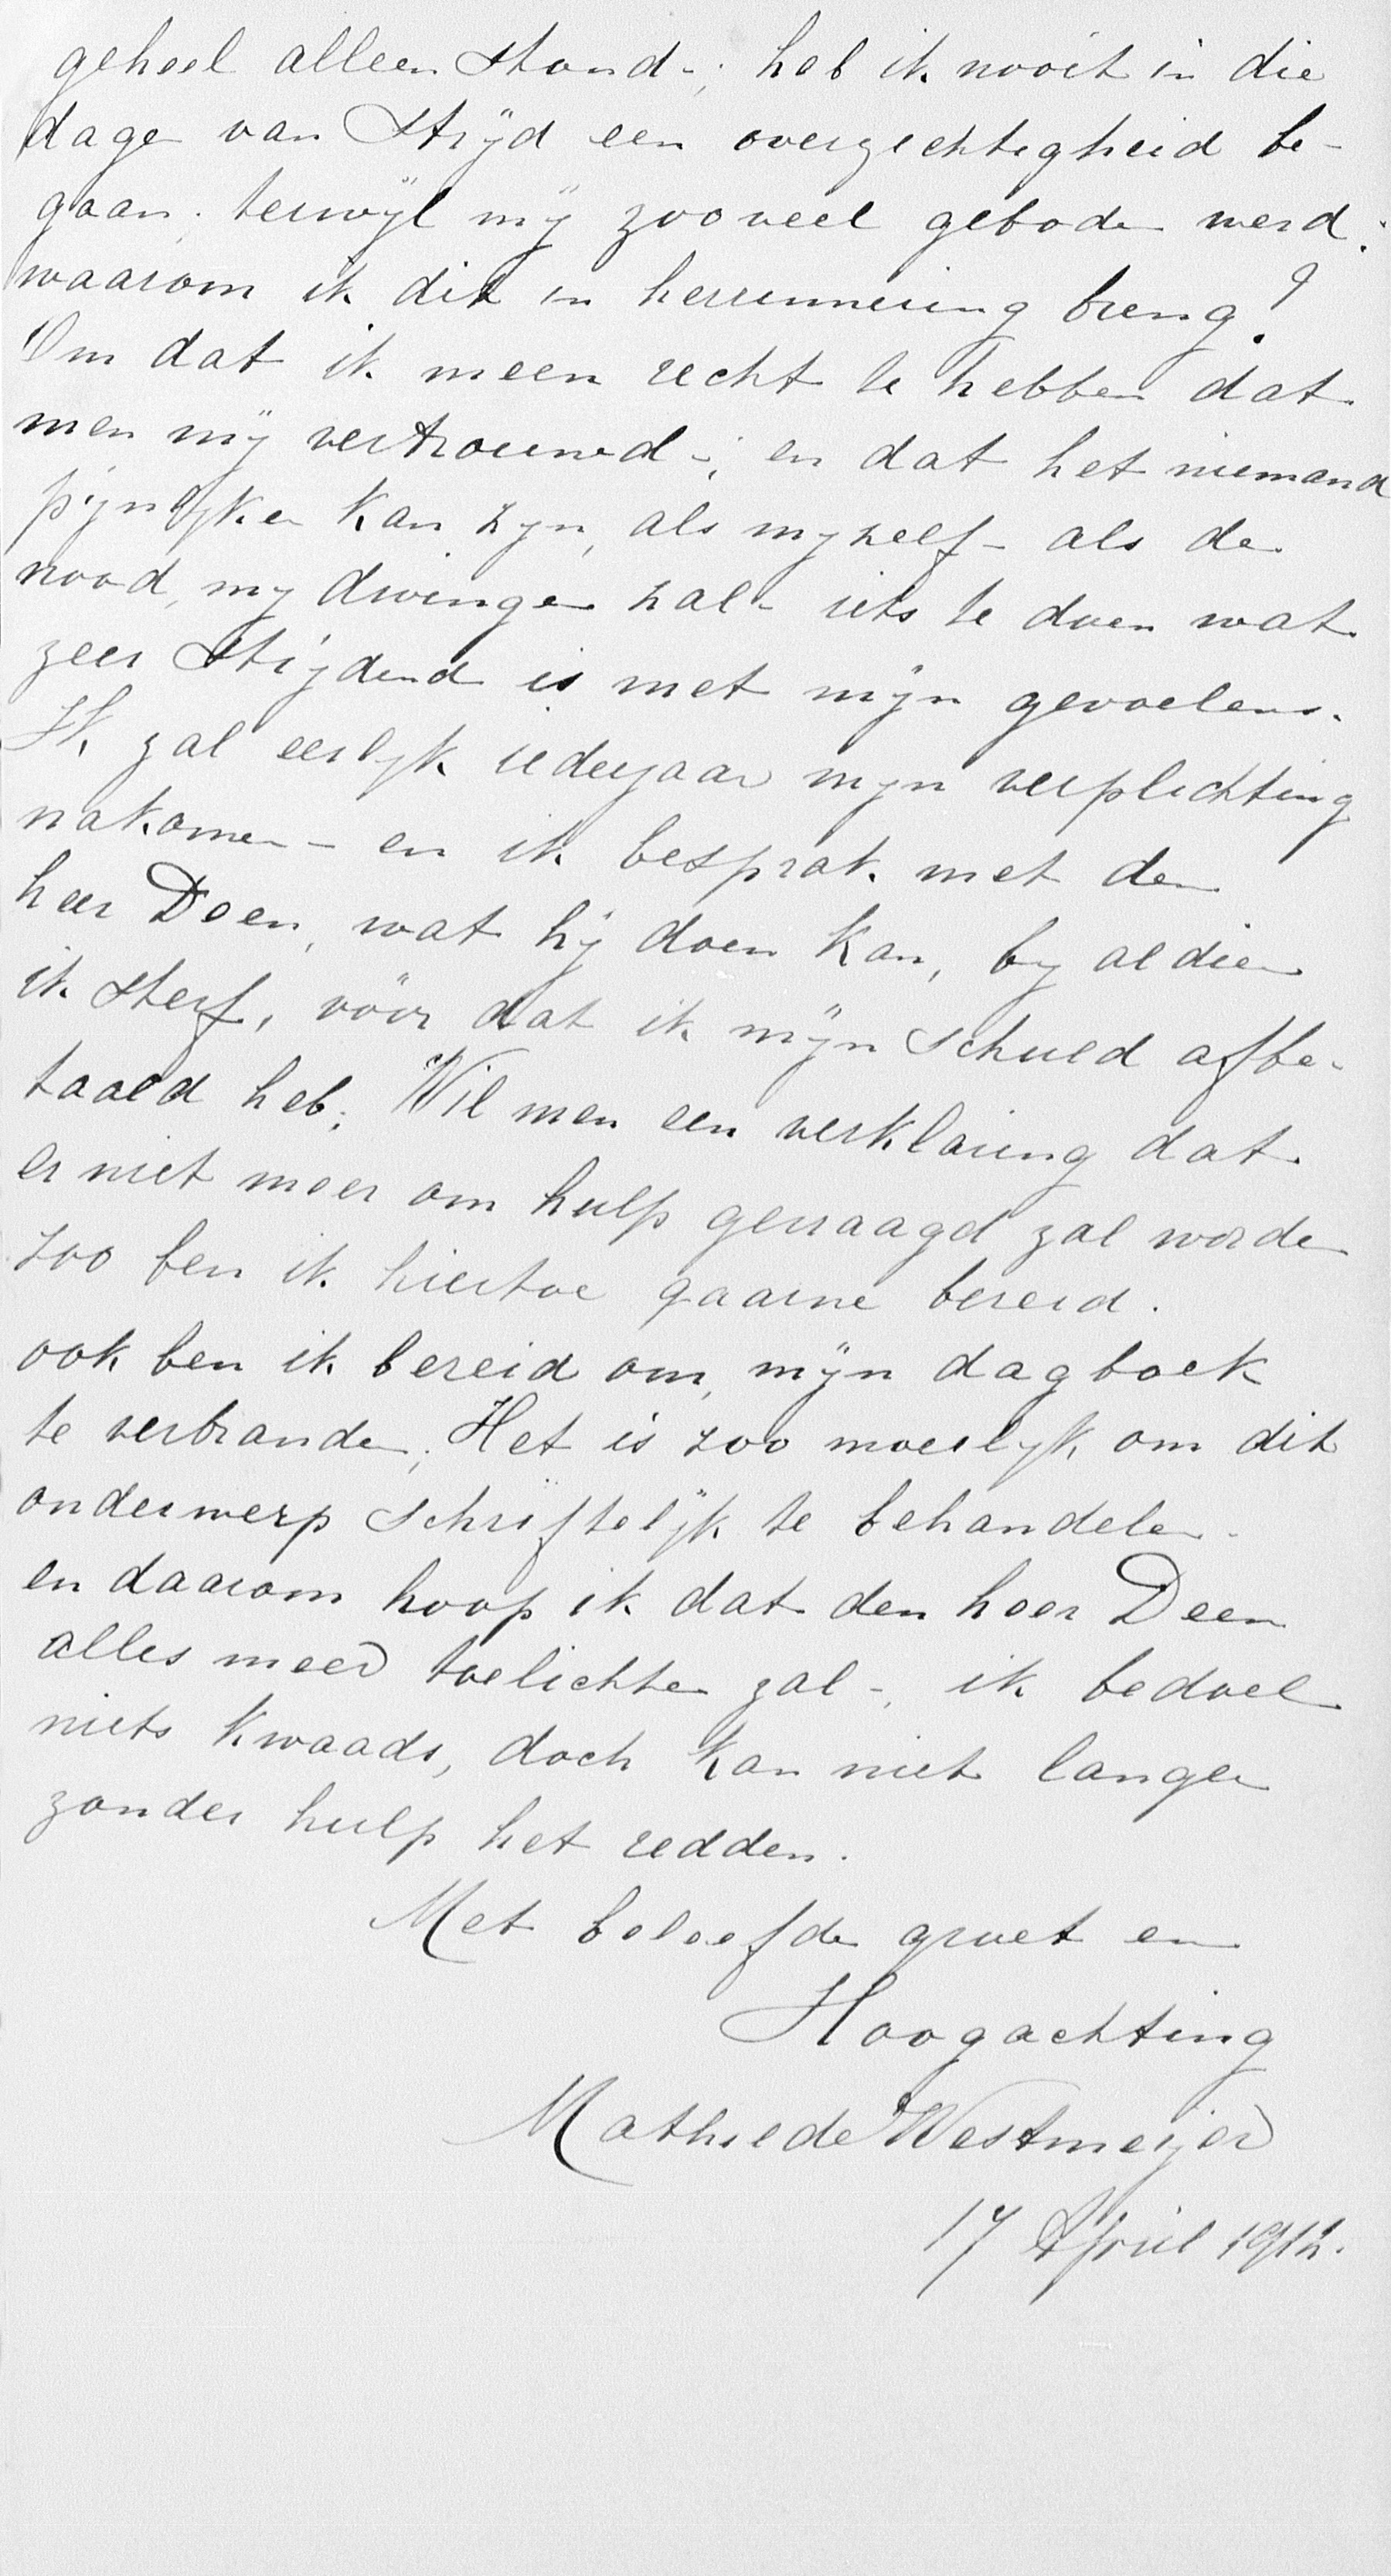 geheel alleen stond-; heb ik nooit in die
dage van strijd een overzechtigheid be-
gaan. terwijl mij zooveel gebode werd:
waarom ik dit in herrinnering breng?
Om dat ik meen recht te hebben dat
men mij vertrouwd-; en dat het niemand
pijnlijker kan zijn, als mijzelf - als de
nood, mij dwinge zal - iets te doen wat
zeer strijdend is met mijn gevoelens.
Ik zal eerlijk iederjaar mijn verplichting
nakome - en ik besprak met den
heer Deen, wat hij doen kan, bij aldien
ik sterf, vóór dat ik mijn schuld afbe-
taald heb; Wil men een verklaring dat
er niet meer om hulp gevraagd zal worde
zoo ben ik hiertoe gaarne bereid.
ook ben ik bereid om, mijn dagboek
te verbrande; Het is zoo moeilijk om dit
onderwerp schriftelijk te behandele -
en daarom hoop ik dat den heer Deen
alles meer toelichte zal -, ik bedoel
niets kwaads, doch kan niet langer
zonder hulp het redden.
Met beleefde groet en
Hoogachting
Mathilde Westmeijer
17 April 1912.